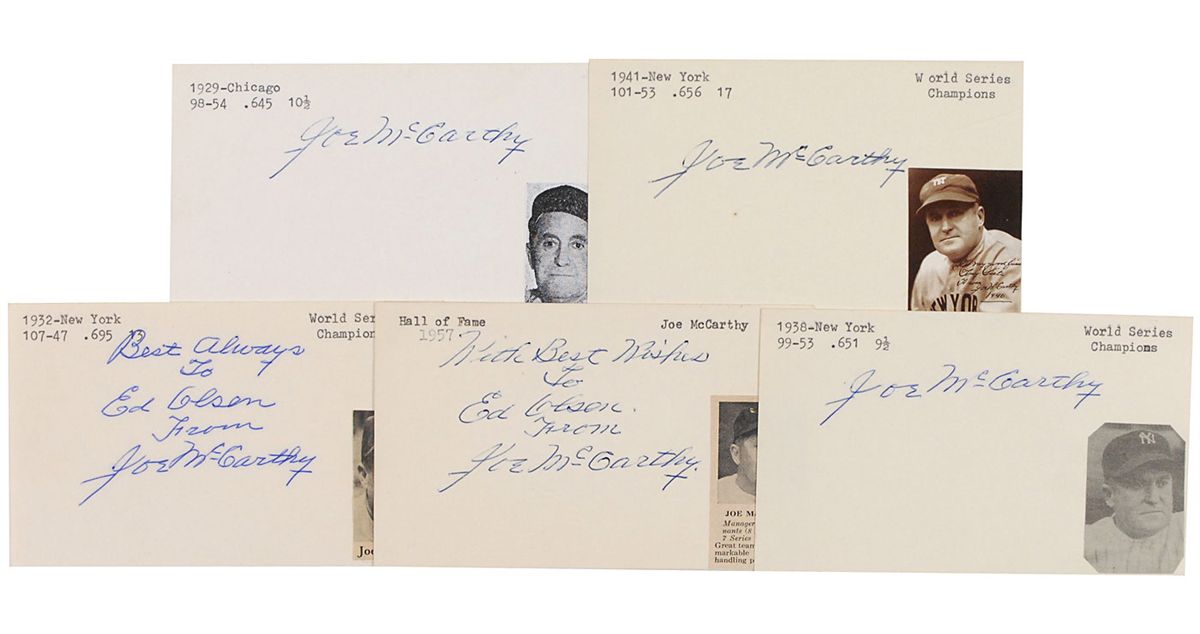 1929-Chicago
98-54 .645 10½
Joe McCarthy
1941-New York
101-53 .656 17
World Series
Champions
Joe McCarthy
NEW YOR
1932-New York
107-47 .695
World Ser
Champion
Best Always
To
Ed Olsen
From
Joe McCarthy
Joe
Hall of Fame
1957
Joe McCarthy
With Best Wishes
To
Ed Olsen.
From
Joe McCarthy.
JOE M
Manager
nants (8
7 Series
Great team
markable
handling p
1938-New York
99-53 .651 9½
World Series
Champions
Joe McCarthy
NY